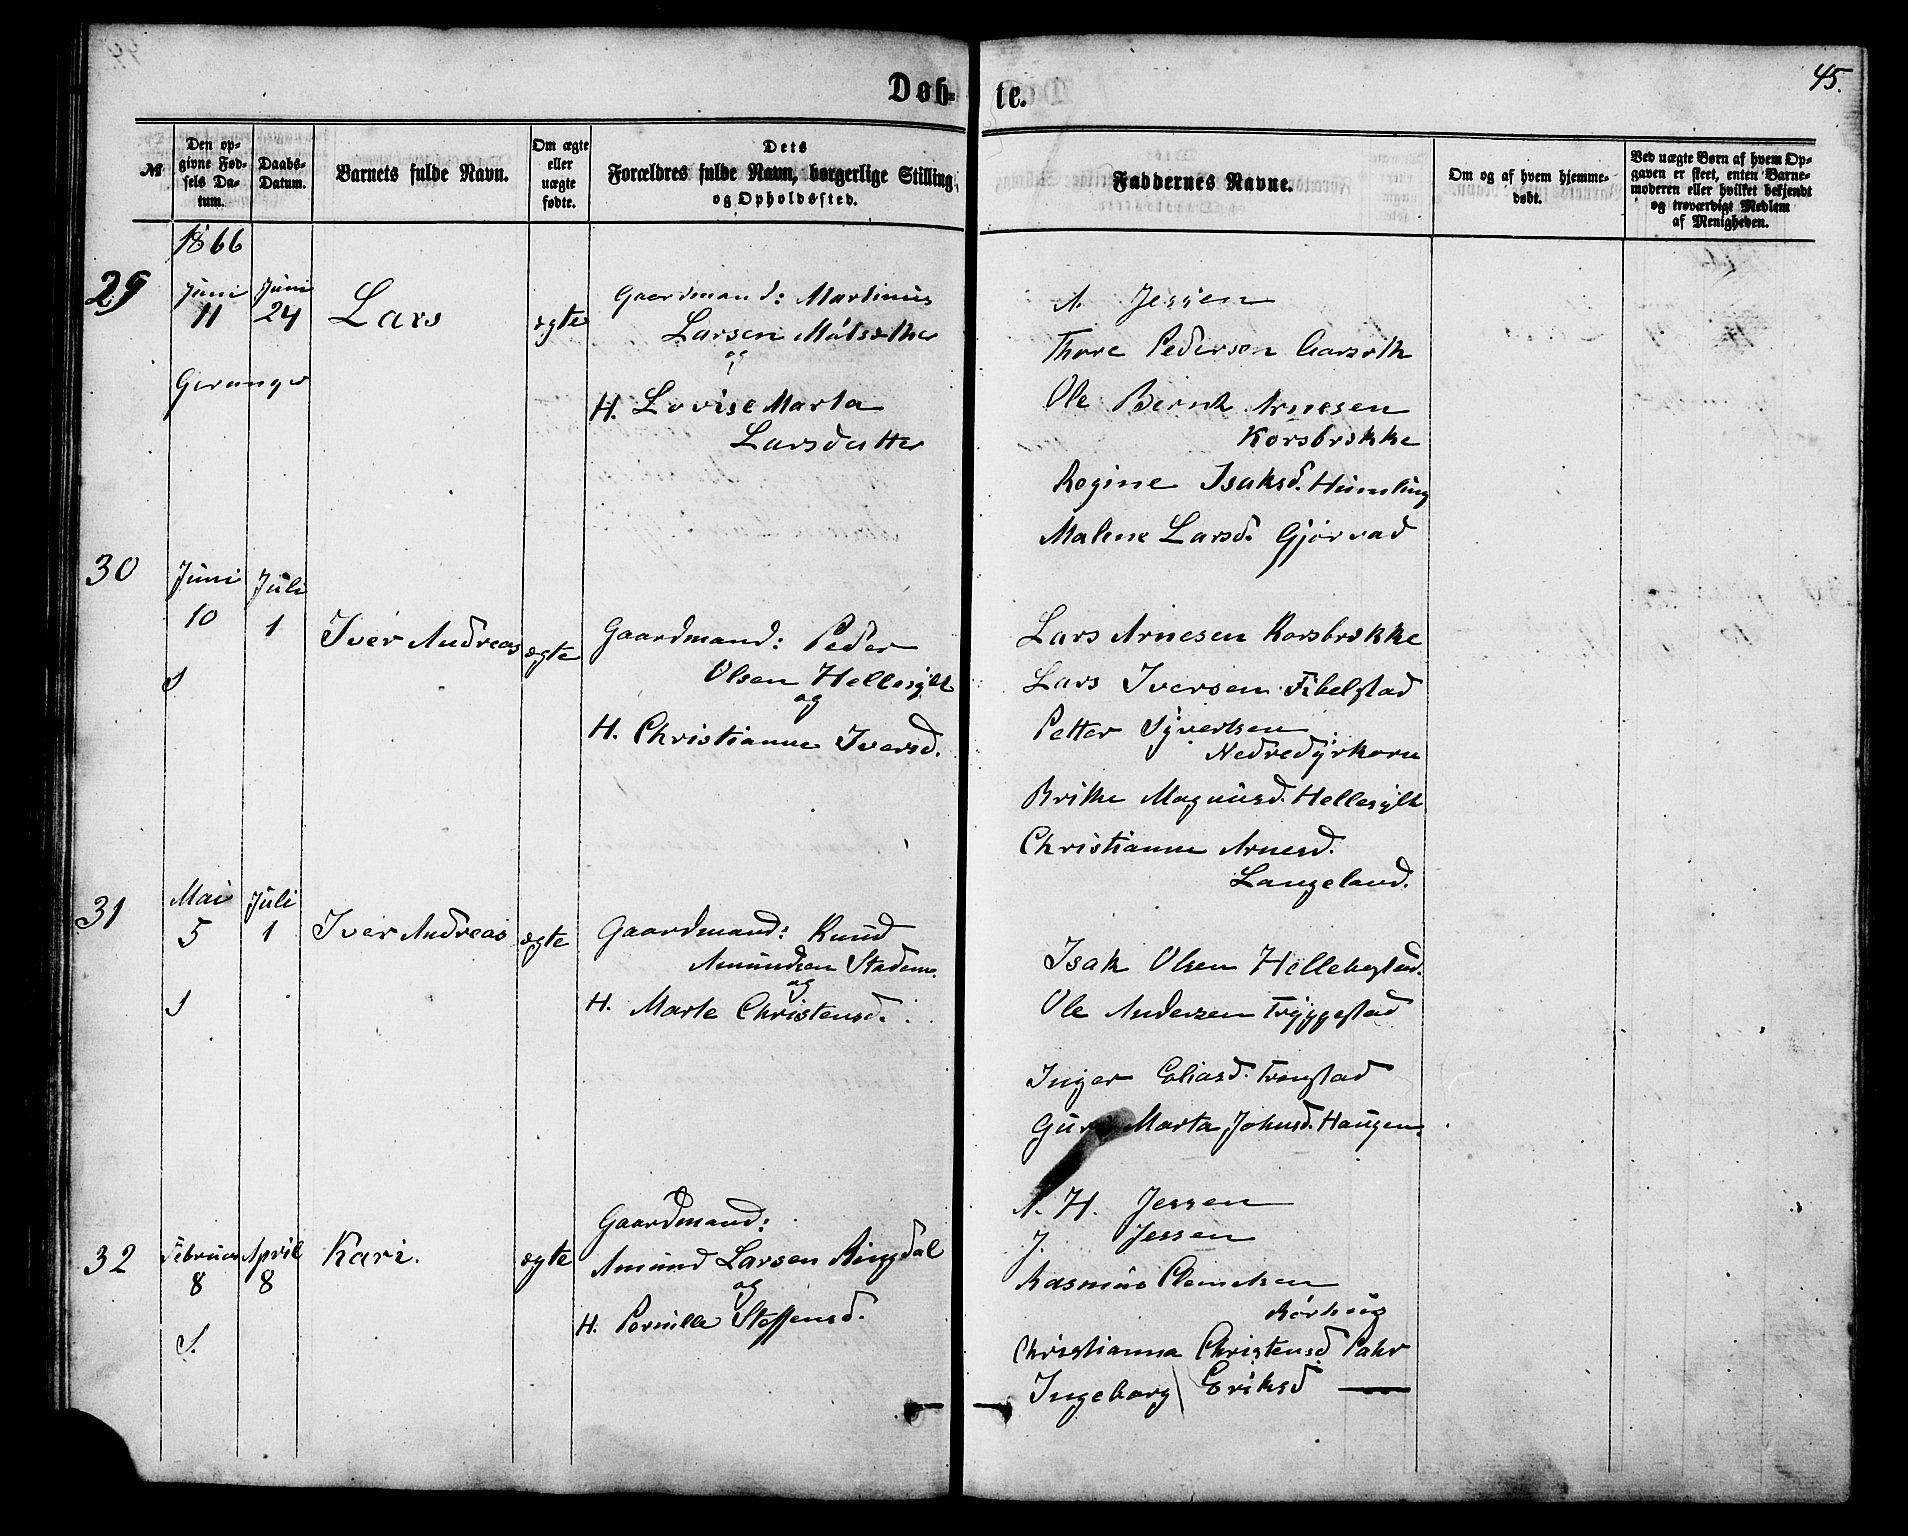 Døb-
te.
45.
№
Den op-
givne Fød-
sels Da-
tum.
Daabs-
Datum.
Barnets fulde Navn.
Om ægte
eller
uægte
fødte.
Dets
Forældres fulde Navn, borgerlige Stilling
og Opholdssted.
Faddernes Navne.
Om og af hvem hjemme-
døbt.
Ved uægte Børn af hvem Op-
gaven er skeet, enten Barne-
moderen eller hvilket bekjendt
og troværdigt Medlem
af Menigheden.
1866
29
Juni
11
Juni
24
Geranger
Lars
ægte
Gaardmand: Martinus
Larsen Mólsæther
og
H. Lovise Marta
Larsdatter
A. Jessen
Thore Pedersen
Ole Bernt Arnesen
Korsbrække
Regine Isaksd. Humling
Malene Larsd. Gjørvad
30
Juni
10
Juli
1
S
Iver Andreas
ægte
Gaardmand: Peder
Olsen Hellesylt
og
H. Christianne Iversd.
Lars Arnesen Korsbrække
Lars Iversen Fibelstad
Petter Syvertsen
Nedredyrkorn
Brithe Magnusd. Hellesylt
Christianne Arnesd.
Langeland.
31
Mai
5
Juli
1
S
Iver Andreas
ægte
Gaardmand: Knud
Amundsen Stadem
og
H. Marte Christensd.
Isak Olsen Hellebostad.
Ole Andersen Tryggestad
Inger Eliasd. Tronstad
Guri Marta Johnsd. Haugen.
32
Februar
8
April
8
S.
Kari.
ægte
Gaardmand:
Amund Larsen Ringdal
og
H. Pernille Steffensd.
A. H. Jessen
J. Jessen
Rasmus Clemetsen
Rørhuus
Christianna Christensd. Páhr
Ingeborg Eriksd —